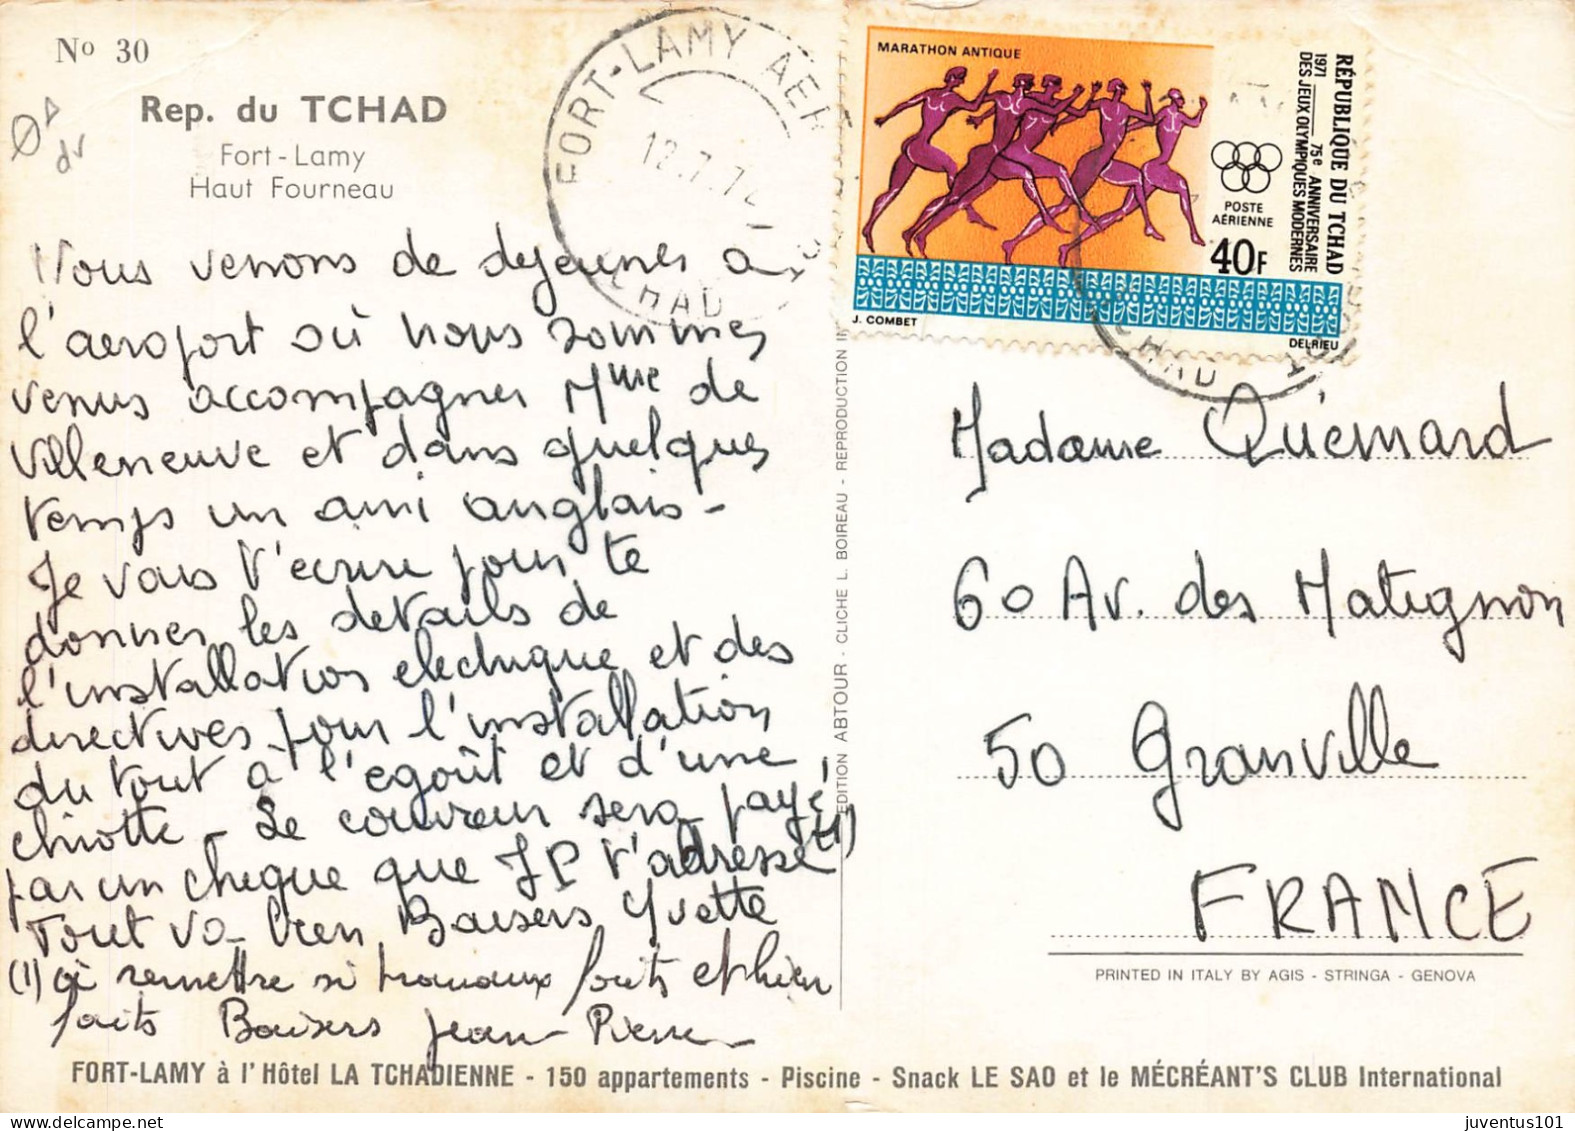 No 30
Rep. du TCHAD
Fort-Lamy
Haut Fourneau
Nous venons de dejeuner à
l'aeroport où nous sommes
venus accompagner Mme de
Villeneuve et dans quelques
temps un ami anglais -
Je vais t'ecrire pour te
donner les details de
l'installation electrique et des
directives pour l'installation
du tout à l'egoût et d'une
chiotte - Le couvreur sera payé
par un cheque que JP t'adresse (1)
Tout va bien Baisers Yvette
(1) à remettre si travaux faits et bien
faits Baisers Jean-Pierre
FORT-LAMY AER
12.7.7
TCHAD
MARATHON ANTIQUE
RÉPUBLIQUE DU TCHAD
1971 75e ANNIVERSAIRE
DES JEUX OLYMPIQUES MODERNES
POSTE
AÉRIENNE
40F
J. COMBET
DELRIEU
TCHAD
EDITION ABTOUR - CLICHE L. BOIREAU - REPRODUCTION IN
Madame Quémard
60 Av. des Matignon
50 Granville
FRANCE
PRINTED IN ITALY BY AGIS - STRINGA - GENOVA
FORT-LAMY à l'Hôtel LA TCHADIENNE - 150 appartements - Piscine - Snack LE SAO et le MÉCRÉANT'S CLUB International
juventus101